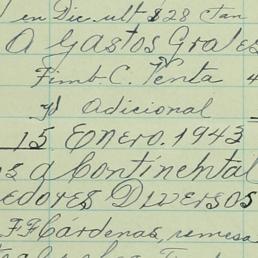 en Dic. ult $28 c/an
A Gastos Grales
Timb. C. Venta 4
Yd Adicional
15 Enero. 1943
s a Continental
edores Diversos
F F Cárdenas, remesa